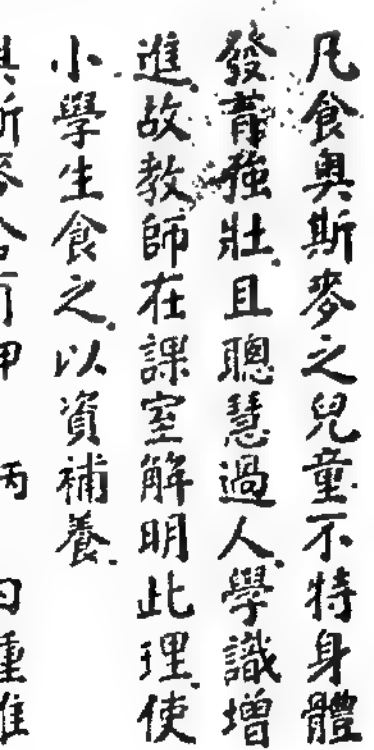 凡食奥斯麥之兒童不特身體
發育強壯且聰慧過人學識增
進故教師在課室解明此理使
小學生食之以資補養